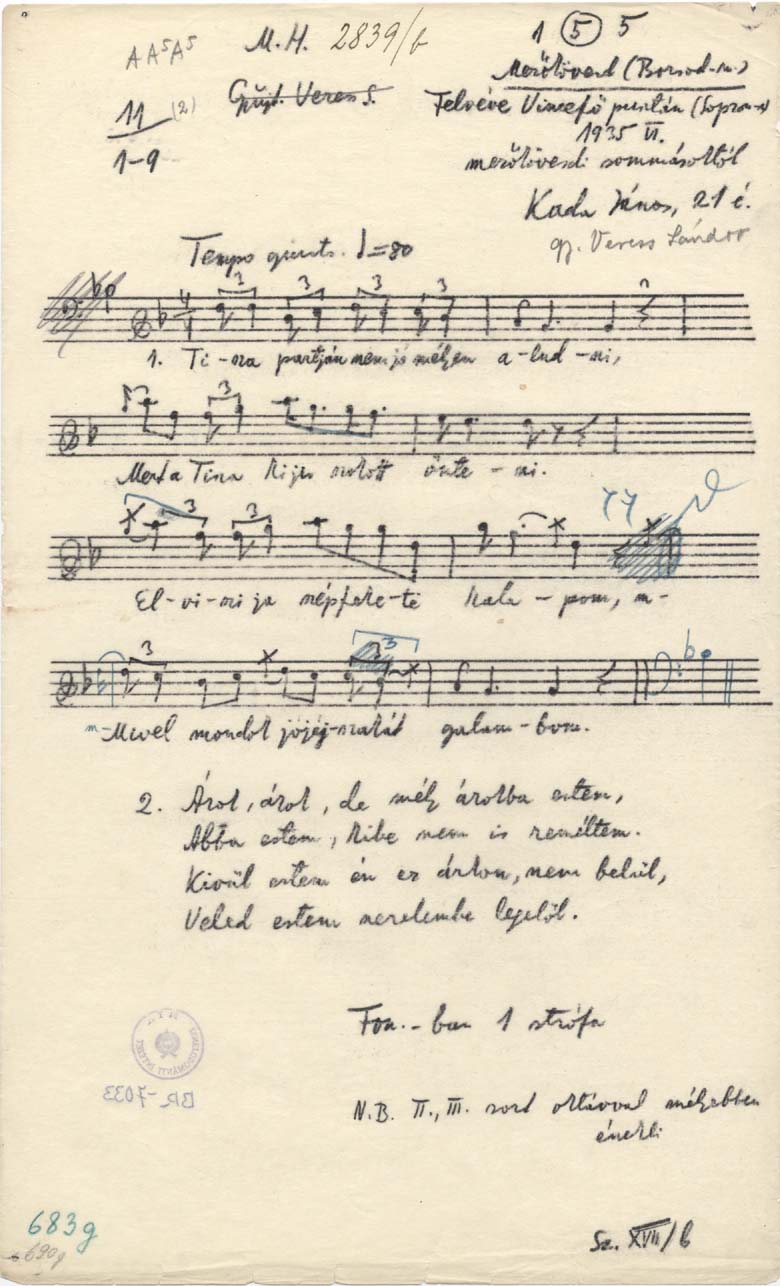 AA⁵A⁵
M.H. 2839/b
1 ⑤ 5
Mezőkövesd (Borsod-m.)
Gyűjt. Veress S.
Felvéve Vincefő pusztán (Sopron-m)
11 (2)
1-9
1935 VI.
mezőkövesdi sommásoktól
Kada János, 21 é.
gy. Veress Sándor
Tempo giusto. ♩=80
1. Ti-sza partján nem jó mélyen a-lud-ni,
Mert a Tisza ki szokott önte-ni.
El-vi-szi ja szép feke-te kala-pom, m-
m-Mivel mondok jójéj-szakát galam-bom.
2. Árok, árok, de mély árokba estem,
Abba estem, kibe nem is reméltem.
Kivül estem én ez árkon, nem belül,
Veled estem szerelembe legelől.
Fon.-ban 1 strófa
BR-7033
N.B. II., III. sort oktávval mélyebben
énekli
683g
690g
Sz. XVII/b